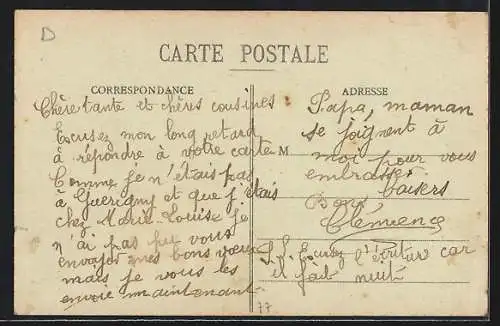 D
CARTE POSTALE
CORRESPONDANCE
Chère tante et chères cousines
Excusez mon long retard
à répondre à votre carte
Comme je n'étais pas
à Guerigny et que j'étais
chez Marie Louise je
n'ai pas pu vous
envoyer mes bons voeux
mais je vous les
envoie maintenant
M
ADRESSE
Papa, maman
se joignent à
moi pour vous
embrasser
Bons baisers
Clémence
Excusez l'écriture car
il fait nuit
77